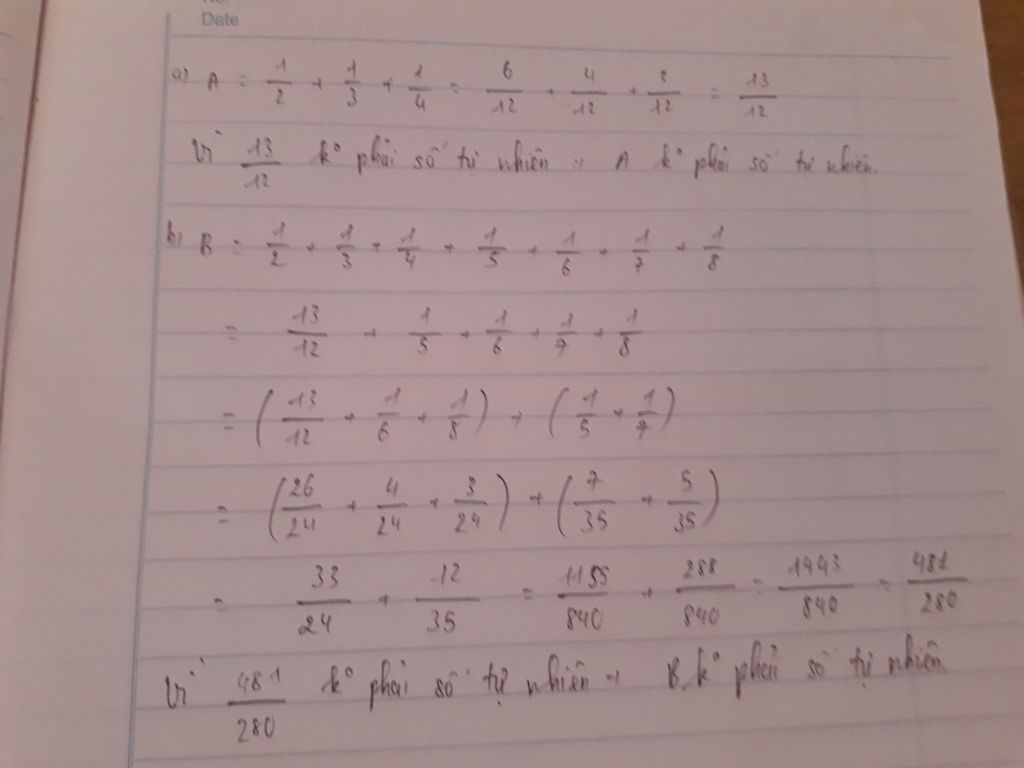 No:
Date
a) A = 1/2 + 1/3 + 1/4 = 6/12 + 4/12 + 2/12 = 13/12
Vì 13/12 k° phải số tự nhiên ⇒ A k° phải số tự nhiên.
b) B = 1/2 + 1/3 + 1/4 + 1/5 + 1/6 + 1/7 + 1/8
= 13/12 + 1/5 + 1/6 + 1/7 + 1/8
= (13/12 + 1/6 + 1/8) + (1/5 + 1/7)
= (26/24 + 4/24 + 3/24) + (7/35 + 5/35)
= 33/24 + 12/35 = 1155/840 + 288/840 = 1443/840 = 481/280
Vì 481/280 k° phải số tự nhiên ⇒ B k° phải số tự nhiên